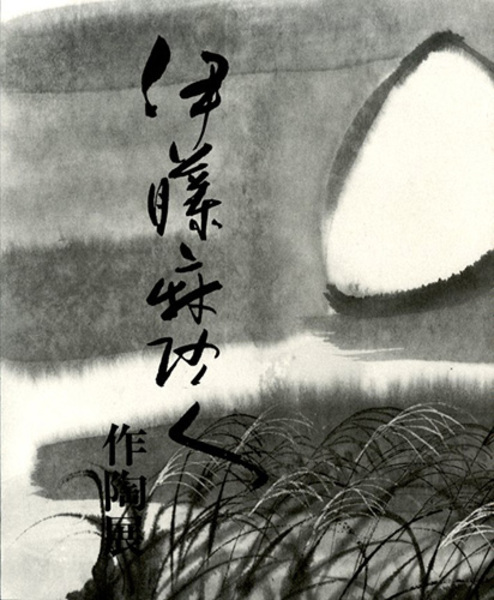 伊藤麻沙人
作陶展